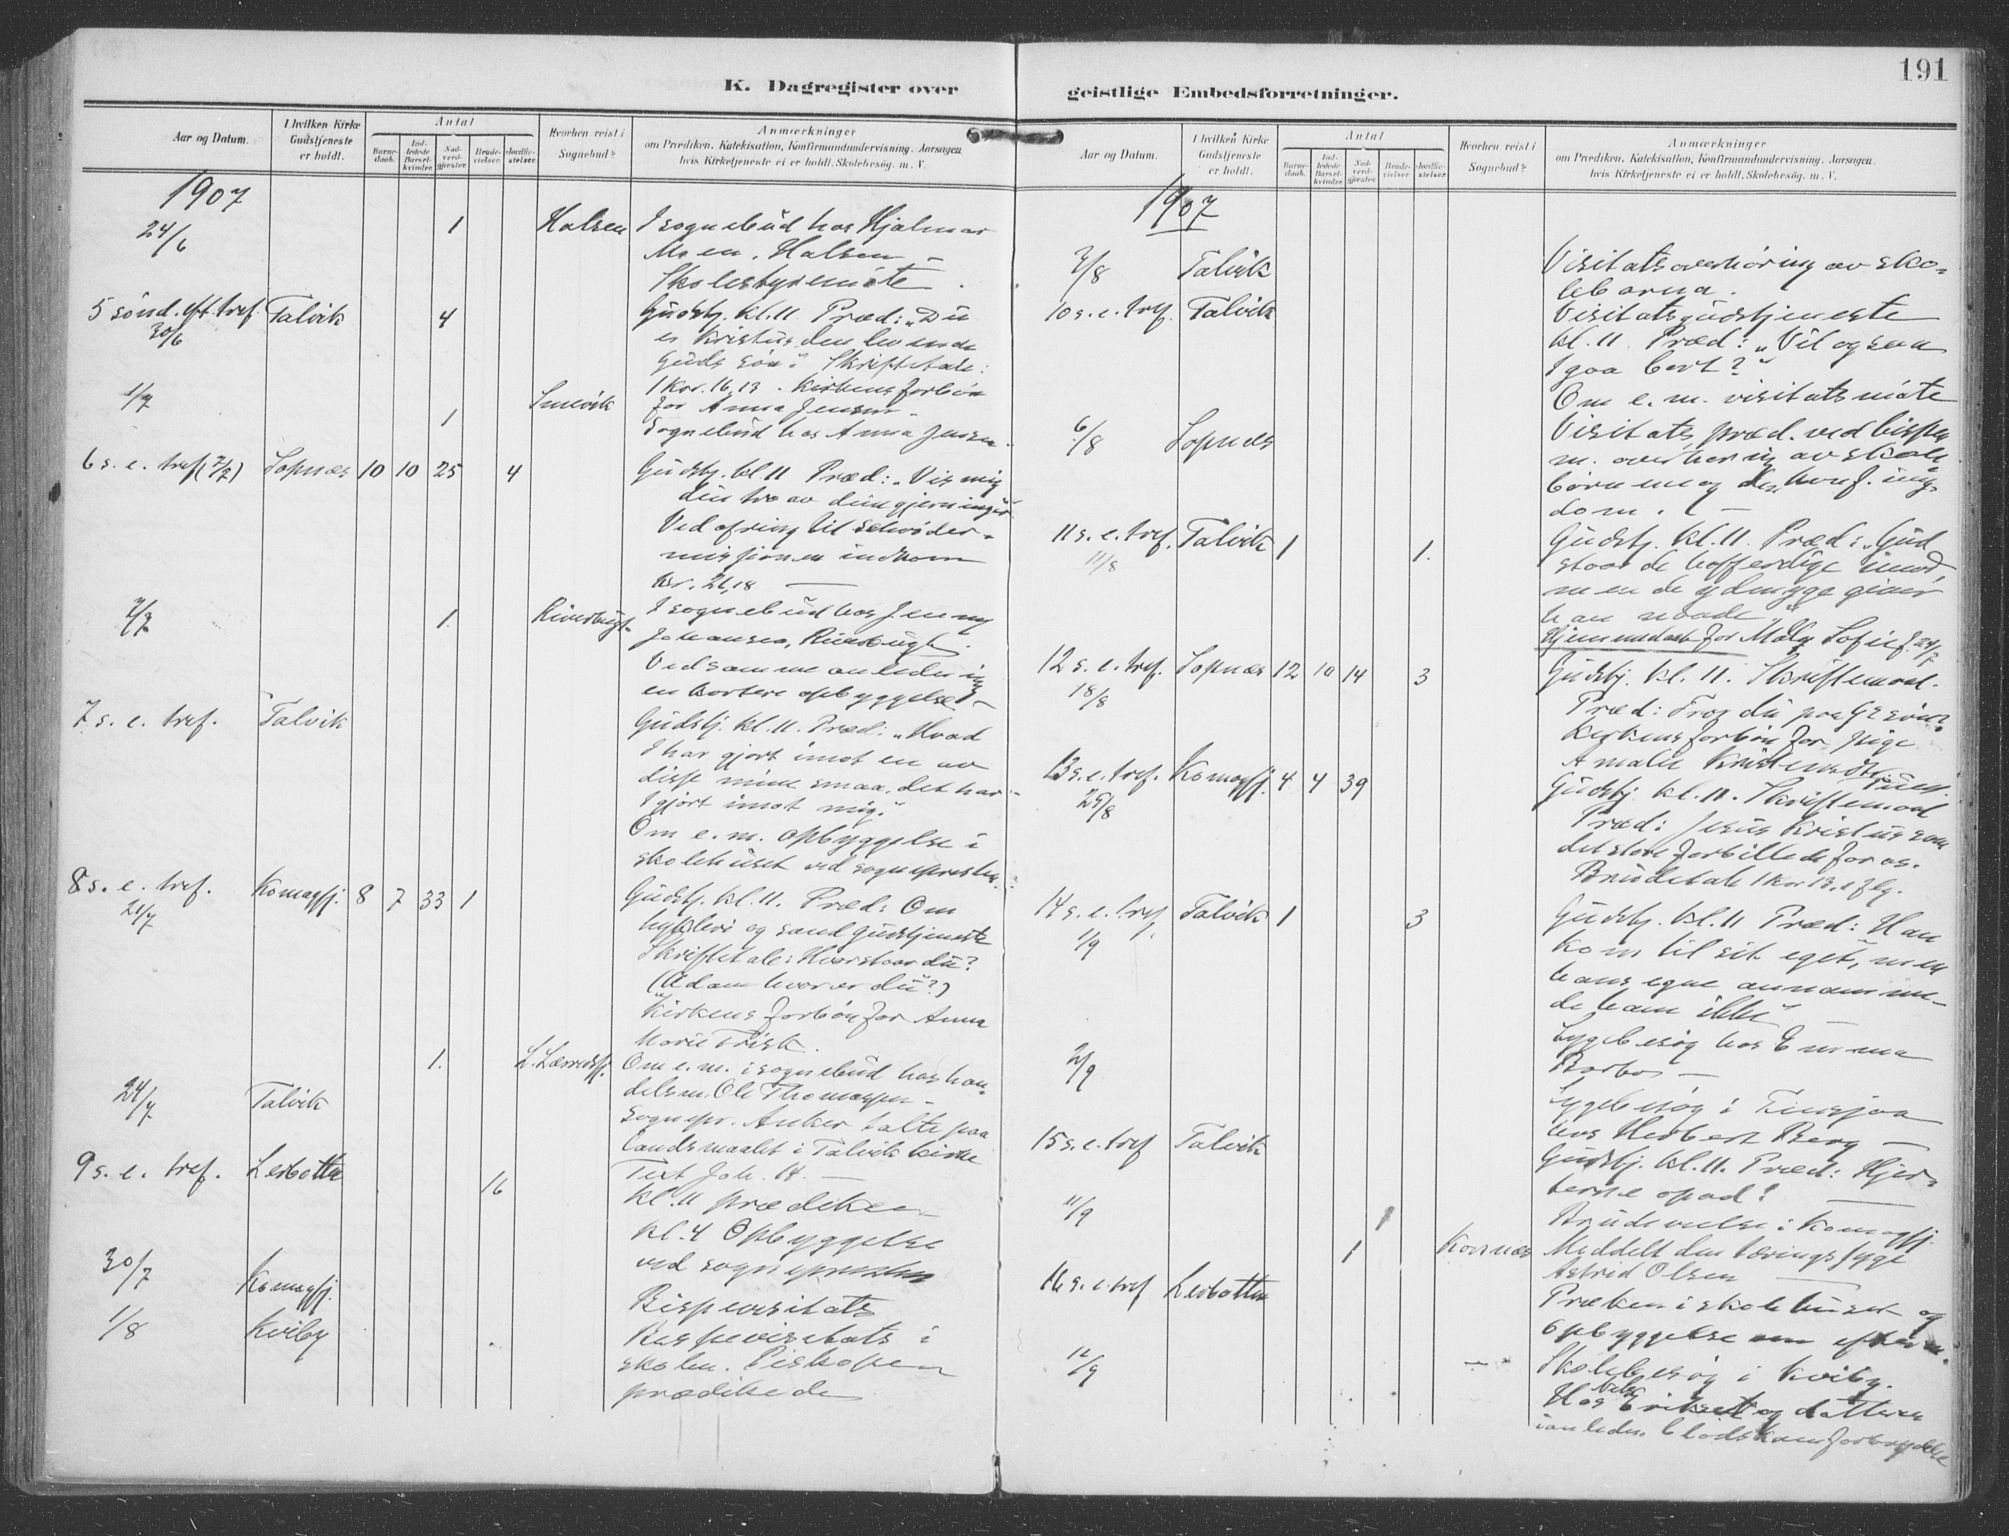 191
K. Dagregister over
geistlige Embedsforretninger.
Aar og Datum.
I hvilken Kirke
Gudstjeneste
er holdt.
Antal
Barne-
daab.
Ind-
ledede
Barsel-
kvinder.
Nad-
verd-
gjester.
Brude-
vielser.
Jordfæ-
stelser.
Hvorhen reist i
Sognebud?
Anmærkninger
om Prædiken, Katekisation, Konfirmandundervisning, Aarsagen
hvis Kirketjeneste ei er holdt, Skolebesög, m. V.
1907
24/6 1 Halsen I sognebud hos Hjalmar
Moen, Halsen –
Skolestyremøte.
5 sønd. eft. tref. Talvik 4 Gudstj. kl. 11 Præd: „Du
30/6 er Kristus den levende
Guds søn". Skriftetale:
1 Kor. 16,13. Kirkens forbøn
for Anna Jensen.
1/7 1 Smevik Sognebud hos Anna Jensen.
6 s. e. tref (7/7) Sopnæs 10 10 25 4 Gudstj. kl 11 Præd: „Vis mig
din tro av dine gjerninger
Ved ofring til
missionen indkom
kr. 21,18 —
7/7 1. Riverbugt I sognebud hos Jenny
Johansen, Riverbugt.
Ved samme anledning
en kortere opbyggelse –
7 s. e. tref. Talvik Gudstj. kl. 11. Præd: „Hvad
I har gjort imot en av
disse mine smaa, det har
I gjort imot mig."
Om e. m. opbyggelse i
skolehuset ved sognepresten.
8 s. e. tref. Komagfj. 8 7 33 1 Gudstj. kl. 11. Præd: Om
21/7 hykleri og sand gudstjeneste
Skriftetale: Hvor staar du?
(Adam hvor er du?)
Kirkens forbøn for Anna
Marie Frisk.
1. L. Lærredsfj. Om e. m. i sognebud hos han-
delsm. Ole Thomassen –
24/7 Talvik Sognepr. Anker talte paa
landsmaalet i Talvik kirke
Text Joh. 14. —
9 s. e. tref. Lerbotten 16 kl. 11 prædiken
kl. 4 Opbyggelse
ved sognepresten
30/7 Komagfj. Bispevisitats
1/8 Kviby Bispevisitats i
skolen. Biskopen
prædikede
Aar og Datum.
I hvilken Kirke
Gudstjeneste
er holdt.
Antal
Barne-
daab.
Ind-
ledede
Barsel-
kvinder.
Nad-
verd-
gjester.
Brude-
vielser.
Jordfæ-
stelser.
Hvorhen reist i
Sognebud?
Anmærkninger
om Prædiken, Katekisation, Konfirmandundervisning, Aarsagen
hvis Kirketjeneste ei er holdt, Skolebesög, m. V.
1907
3/8 Talvik Visitatsoverhøring av sko-
lebarna.
10 s. e. tref. Talvik Visitatsgudstjeneste
kl. 11 Præd: „Vil ogsaa
I gaa bort?"
Om e. m. visitatsmøte
6/8 Sopnæs Visitats præd. ved bispen
m. overhøring av skole-
børnene og den konf. ung-
dom. –
11 s. e. tref. Talvik 1 1. Gudstj. kl. 11. Præd: „Gud
11/8 staar de hoffærdige imod,
men de ydmyge giver
han naade"
Hjemmedøbt for Maly Sofie f. 24/7
12 s. e. tref. Sopnæs 12 10 14 3 Gudstj. kl. 11. Skriftemaal.
18/8 Præd: Tror du paa Gs søn?
Kirkens forbøn for pige
Amalie
13 s. e. tref. Komagfj. 4 4 39 Gudstj. kl. 11. Skriftemaal
25/8 Præd: Jesus Kristus som
det store forbillede for os.
Brudetale 1 Kor 13, 1 flg.
14 s. e. tref. Talvik 1 3 Gudstj. kl. 11 Præd: Han
1/9 kom til sit eget, men
hans egne annamme-
de ham ikke"
Sygebesøg hos Emma
Barbos —
2/9 Sygebesøg i
hos Herbert Berg —
15 s. e. tref Talvik Gudstj. kl. 11. Præd: Hjer-
terne opad!
11/9 1 Brudevielse i Komagfj.
1 Kornæs Meddelt den tæringssyge
Astrid Olsen
16 s. e. tref Lerbotten Præken i skolehuset og
opbyggelse om efterm.
12/9 – " – Skolebesøg i Kviby.
Hos og datteren
i anledn. blodskamsforbrydelse